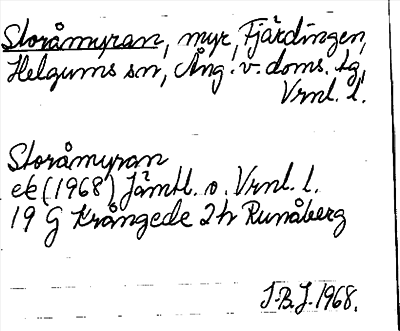 Storåmyran, myr, Fjärdingen,
Helgums sn, Ång. v. doms. tg,
Vrnl. l.
Storåmyran
ek (1968) Jämtl. o. Vrnl. l.
19 G Krångede 2h Runåberg
J.B.J. 1968.